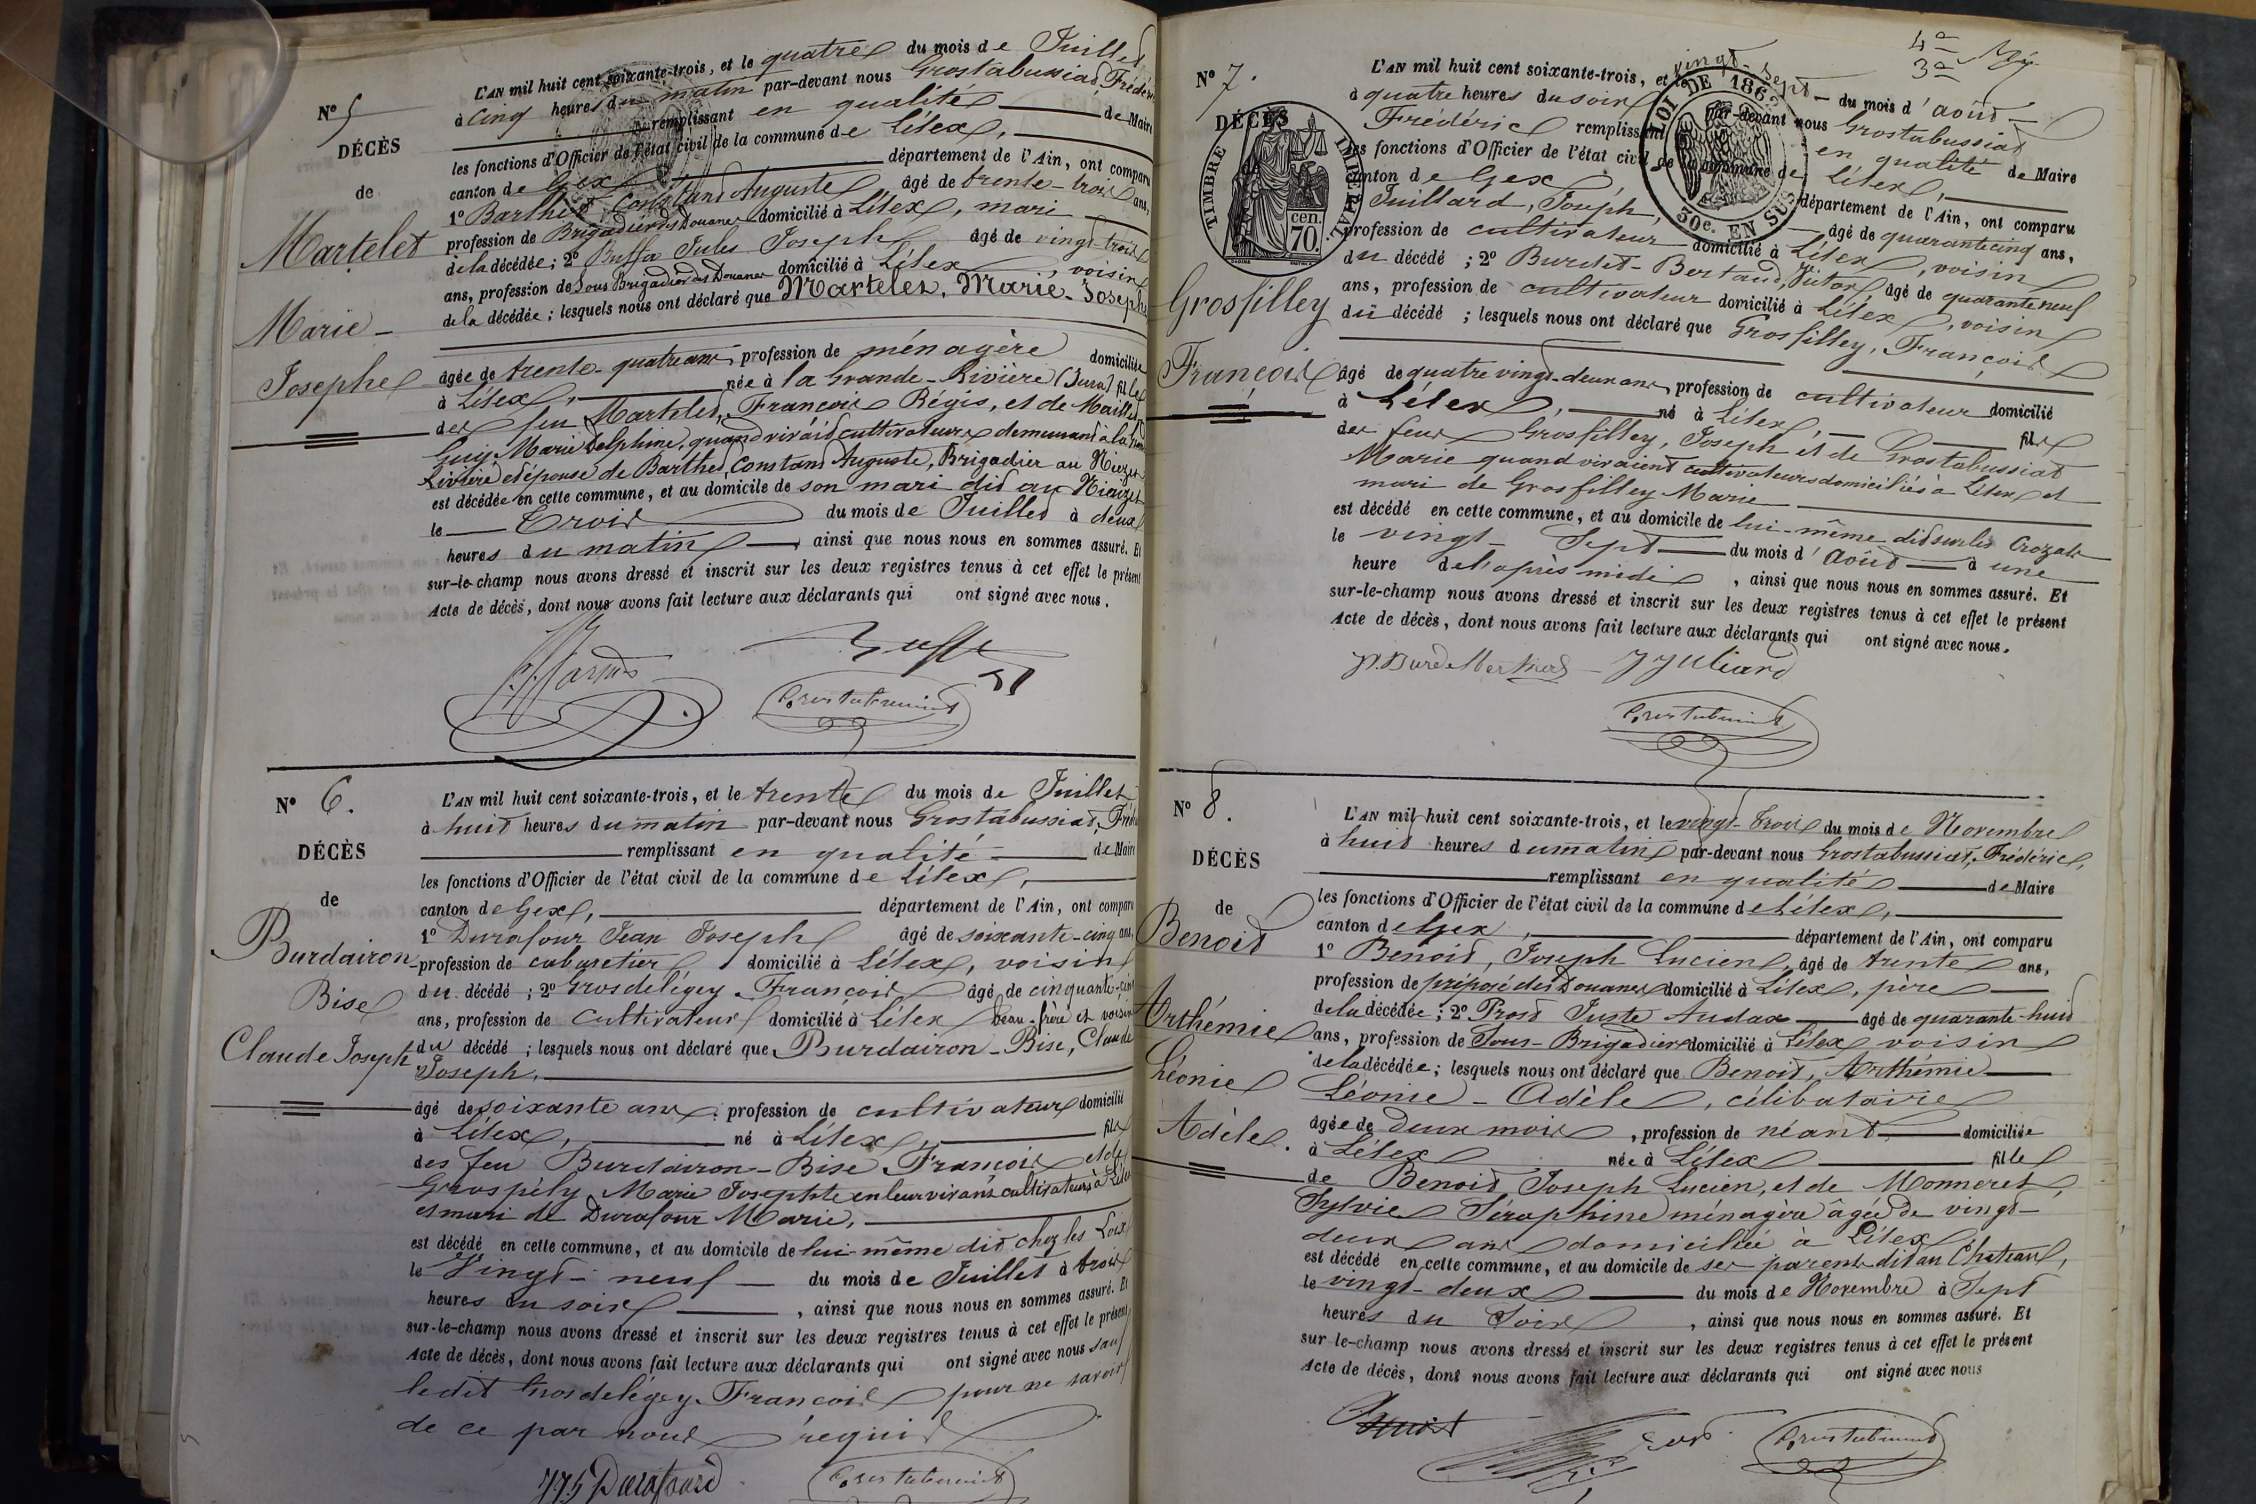 N° 5
DÉCÈS
de
Martelet
Marie-
Josephe
L'AN mil huit cent soixante-trois, et le quatre du mois de Juillet
à cinq heures du matin par-devant nous Grostabussiat, Frédéric
remplissant en qualité de Maire
les fonctions d'Officier de l'état civil de la commune de Lélex,
canton de Gex département de l'Ain, ont comparu
1° Barthet Constand Auguste âgé de trente-trois ans,
profession de Brigadier des Douanes domicilié à Lélex, mari
de la décédée; 2° Buffa Jules Joseph âgé de vingt-trois
ans, profession de Sous Brigadier des Douanes domicilié à Lélex, voisin
de la décédée; lesquels nous ont déclaré que Martelet, Marie-Josephe
âgée de trente-quatre ans, profession de ménagère domiciliée
à Lélex, née à la Grande-Rivière (Jura) fille
de feu Martelet, François Régis, et de Maillet
Guy, Marie Delphine, quand vivait cultivateurs demeurant à la Grande
Rivière et épouse de Barthet, Constand Auguste, Brigadier au Niaizet
est décédée en cette commune, et au domicile de son mari dit au Niaizet
le Trois du mois de Juillet à deux
heures du matin, ainsi que nous nous en sommes assuré. Et
sur-le-champ nous avons dressé et inscrit sur les deux registres tenus à cet effet le présent
Acte de décès, dont nous avons fait lecture aux déclarants qui ont signé avec nous.
Buffa
Grostabussiat
N° 6.
DÉCÈS
de
Burdairon
Bise
Claude Joseph
L'AN mil huit cent soixante-trois, et le trente du mois de Juillet
à huit heures du matin par-devant nous Grostabussiat, Fréd
remplissant en qualité de Maire
les fonctions d'Officier de l'état civil de la commune de Lélex,
canton de Gex, département de l'Ain, ont comparu
1° Durafour Jean Joseph âgé de soixante-cinq ans,
profession de cabaretier domicilié à Lélex, voisin
du décédé; 2° Grosdelégey François âgé de cinquante-cinq
ans, profession de cultivateur domicilié à Lélex beau-frère et voisin
du décédé; lesquels nous ont déclaré que Burdairon-Bise, Claude
Joseph,
âgé de soixante ans, profession de cultivateur domicilié
à Lélex, né à Lélex fils
des feu Burdairon-Bise François et de
Grospély Marie Josephte en leur vivant cultivateurs à Lélex
et mari de Durafour Marie,
est décédé en cette commune, et au domicile de lui-même dit chez les Loix
le Vingt-neuf du mois de Juillet à trois
heures du soir, ainsi que nous nous en sommes assuré. Et
sur-le-champ nous avons dressé et inscrit sur les deux registres tenus à cet effet le présent
Acte de décès, dont nous avons fait lecture aux déclarants qui ont signé avec nous sauf
ledit Grosdelégey François pour ne savoir
de ce par nous requis
JJ Durafourd
Grostabussiat
4e
3e
N° 7.
DÉCÈS
de
TIMBRE IMPERIAL
70 cen.
LOI DE 1862
30c. EN SUS
Grosfilley
François
L'AN mil huit cent soixante-trois, et le vingt-sept du mois d'août
à quatre heures du soir par-devant nous Grostabussiat
Frédéric remplissant en qualité de Maire
les fonctions d'Officier de l'état civil de la commune de Lélex,
canton de Gex département de l'Ain, ont comparu
1° Juillard, Joseph, âgé de quarante cinq ans,
profession de cultivateur domicilié à Lélex, voisin
du décédé; 2° Burdet-Bertand, Victor, âgé de quarante neuf
ans, profession de cultivateur domicilié à Lélex, voisin
du décédé; lesquels nous ont déclaré que Grosfilley, François
âgé de quatre vingt-deux ans, profession de cultivateur domicilié
à Lélex, né à Lélex, fils
des feus Grosfilley, Joseph et de Grostabussiat
Marie quand vivaient cultivateurs domiciliés à Lélex et
mari de Grosfilley Marie
est décédé en cette commune, et au domicile de lui-même dit sur les Crozats
le vingt-Sept du mois d'Août à une
heure de l'après midi, ainsi que nous nous en sommes assuré. Et
sur-le-champ nous avons dressé et inscrit sur les deux registres tenus à cet effet le présent
Acte de décès, dont nous avons fait lecture aux déclarants qui ont signé avec nous.
JJ Juliard
Grostabussiat
N° 8.
DÉCÈS
de
Benoit
Arthémie
Léonie
Adèle.
L'AN mil huit cent soixante-trois, et le vingt-trois du mois de Novembre
à huit heures du matin par-devant nous Grostabussiat, Frédéric,
remplissant en qualité de Maire
les fonctions d'Officier de l'état civil de la commune de Lélex,
canton de Gex, département de l'Ain, ont comparu
1° Benoit, Joseph Lucien, âgé de trente ans,
profession de préposé des Douanes domicilié à Lélex, père
de la décédée; 2° Prost Juste Audax âgé de quarante-huit
ans, profession de Sous-Brigadier domicilié à Lélex voisin
de la décédée; lesquels nous ont déclaré que Benoit, Arthémie
Léonie-Adèle, célibataire
âgée de deux mois, profession de néant domiciliée
à Lélex née à Lélex fille
de Benoit Joseph Lucien, et de Monneret,
Sylvie Séraphine ménagère âgée de vingt-
deux ans domiciliée à Lélex,
est décédé en cette commune, et au domicile de ses parents dit au Chateau,
le vingt-deux du mois de Novembre à Sept
heures du Soir, ainsi que nous nous en sommes assuré. Et
sur le-champ nous avons dressé et inscrit sur les deux registres tenus à cet effet le présent
Acte de décès, dont nous avons fait lecture aux déclarants qui ont signé avec nous
Benoit
Grostabussiat